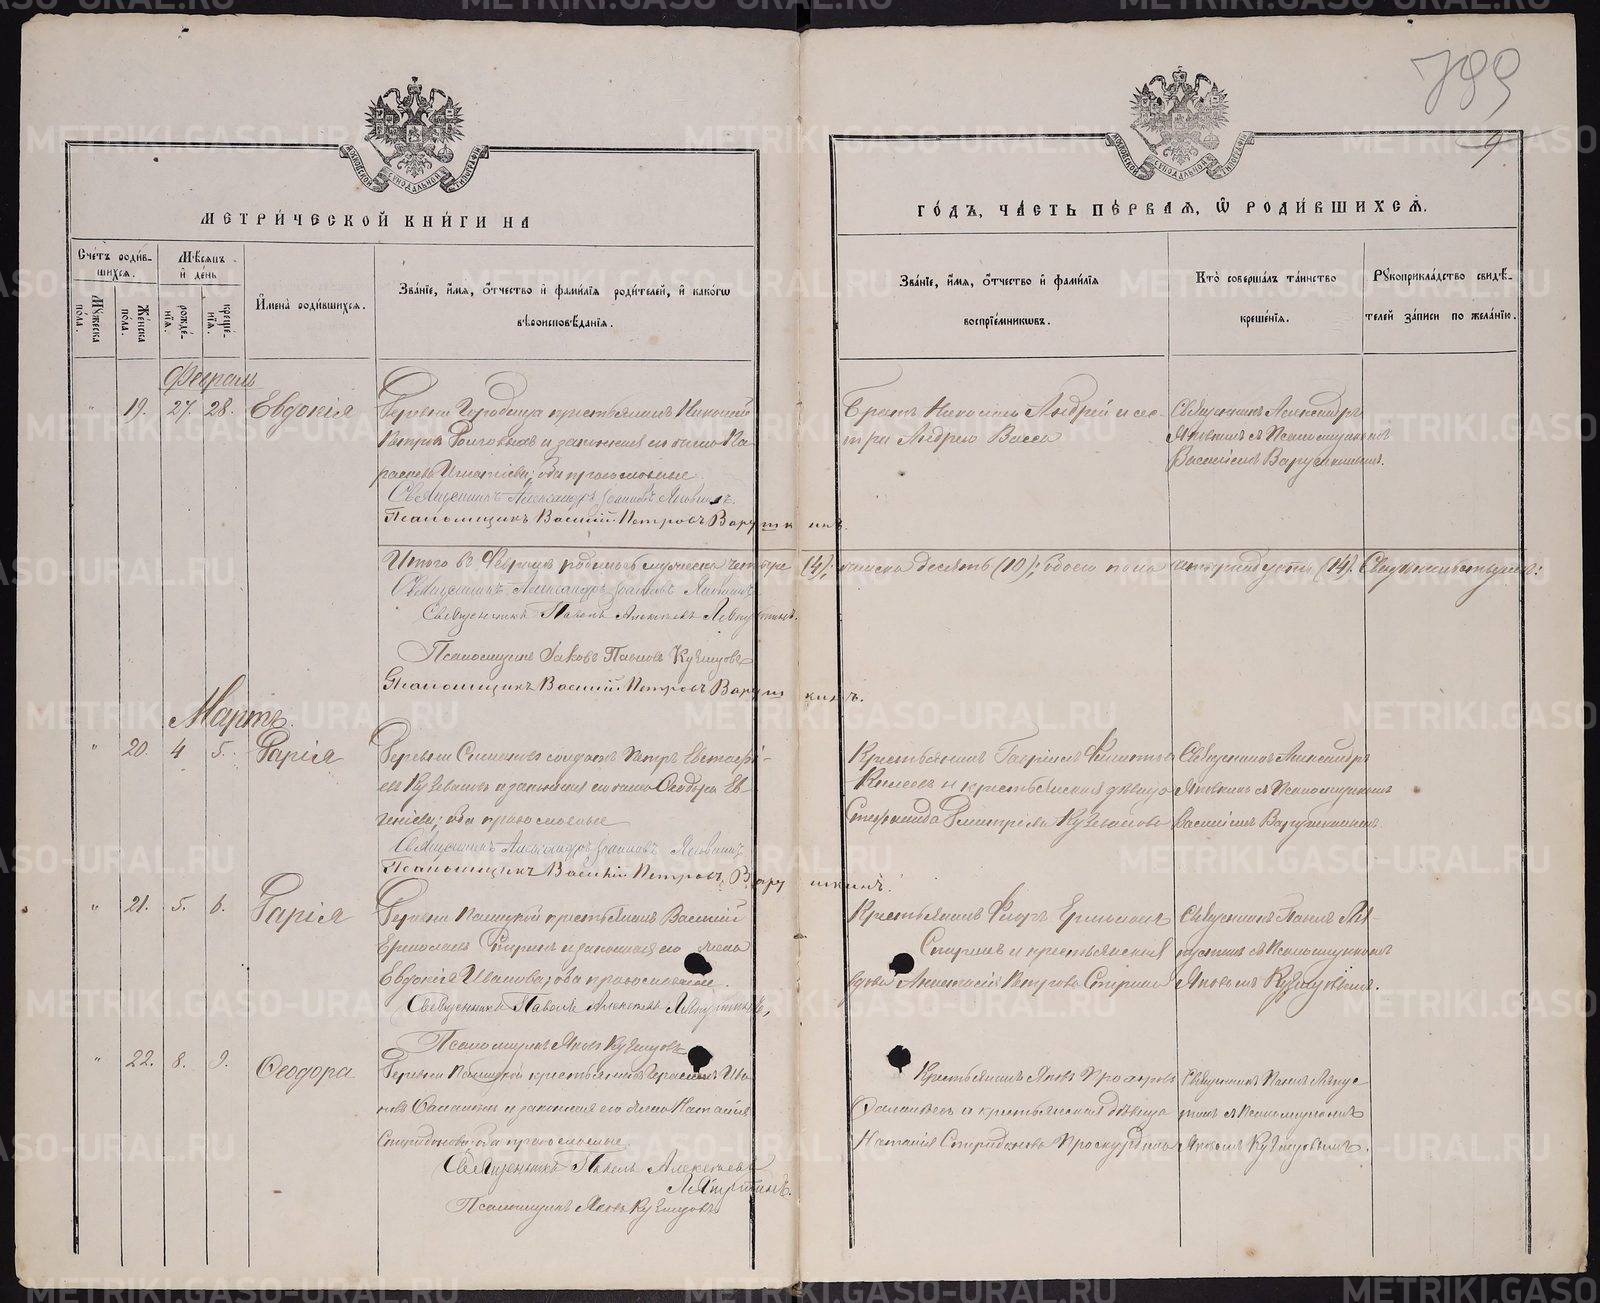 789
9
МОСКОВСКОЙ СУНОДАЛЬНОЙ ТИПОГРАФІИ
МОСКОВСКОЙ СУНОДАЛЬНОЙ ТИПОГРАФІИ
МЕТРИ́ЧЕСКОЙ КНИ́ГИ НА
ГО́ДЪ, ЧА́СТЬ ПЕ́РВАЯ, Ѡ РОДИ́ВШИХСѦ.
Сче́тъ роди́в-
шихсѧ.
Мꙋжеска по́ла.
Же́нска по́ла.
Мѣ́сѧцъ
и҆ де́нь
рожде́-
нїѧ.
креще́-
нїѧ.
И҆мена̀ роди́вшихсѧ.
Зва́нїе, и҆́мѧ, ѻ҆́тчество и҆ фами́лїѧ роди́телей, и҆ како́гѡ
вѣроисповѣ́данїѧ.
Зва́нїе, и҆́мѧ, ѻ҆́тчество и҆ фами́лїѧ
воспрїе́мникѡвъ.
Кто̀ соверша́лъ та́инство
креще́нїѧ.
Рꙋкоприкла́дство свидѣ́-
телей за́писи по жела́нїю.
Февраль
19. 27. 28. Евдокія
Деревни Городища крестьянинъ Николай
Петровъ и законная его жена Па-
раскева Игнатіева; оба православные
Священникъ Александръ Іоанновъ Яковкинъ.
Псаломщикъ Василій Петровъ Варушкинъ.
Братъ Николая Андрей и сес-
тра Андрею Васса
Священникъ Александръ
Яковкинъ съ Псаломщикомъ
Василіемъ Варушкинымъ.
Итого въ Февралѣ родилось мужеска четыре (4), женска десять (10), обоего пола четырнадцать (14). Свидѣтельствуемъ:
Священникъ Александръ Іоанновъ Яковкинъ
Священникъ Павелъ Алексѣевъ Ляпустинъ.
Псаломщикъ Іаковъ Павловъ Кузнецовъ
Псаломщикъ Василій Петровъ Варушкинъ.
Мартъ.
20. 4 5. Дарія
Деревни солдатъ Петръ Евстафі-
евъ и законная его жена Ѳеодора Ев-
геніева; оба православные
Священникъ Александръ Іоанновъ Яковкинъ
Псаломщикъ Василій Петровъ Варушкинъ.
Крестьянинъ Гавріилъ
и крестьянская дѣвица
Стефанида Димитріева
Священникъ Александръ
Яковкинъ съ Псаломщикомъ
Василіемъ Варушкинымъ.
21. 5. 6. Дарія
Деревни крестьянинъ Василій
Ермолаевъ Спиринъ и законная его жена
Евдокія Иванова; оба православные.
Священникъ Павелъ Алексѣевъ Ляпустинъ,
Псаломщикъ Яковъ Кузнецовъ
Крестьянинъ
Спиринъ и крестьянская
вдова Анастасія Петрова Спирина
Священникъ Павелъ Ля-
пустинъ съ Псаломщикомъ
Яковомъ Кузнецовымъ.
22. 8. 9. Ѳеодора
Деревни крестьянинъ Герасимъ Ива-
новъ и законная его жена Наталія
Спиридонова; оба православные.
Священникъ Павелъ Алексѣевъ
Ляпустинъ.
Псаломщикъ Яковъ Кузнецовъ
Крестьянинъ Яковъ Прохоровъ
и крестьянская дѣвица
Наталія Спиридонова Проскурякова
Священникъ Павелъ Ляпус-
тинъ съ Псаломщикомъ
Яковомъ Кузнецовымъ.
METRIKI.GASO-URAL.RU